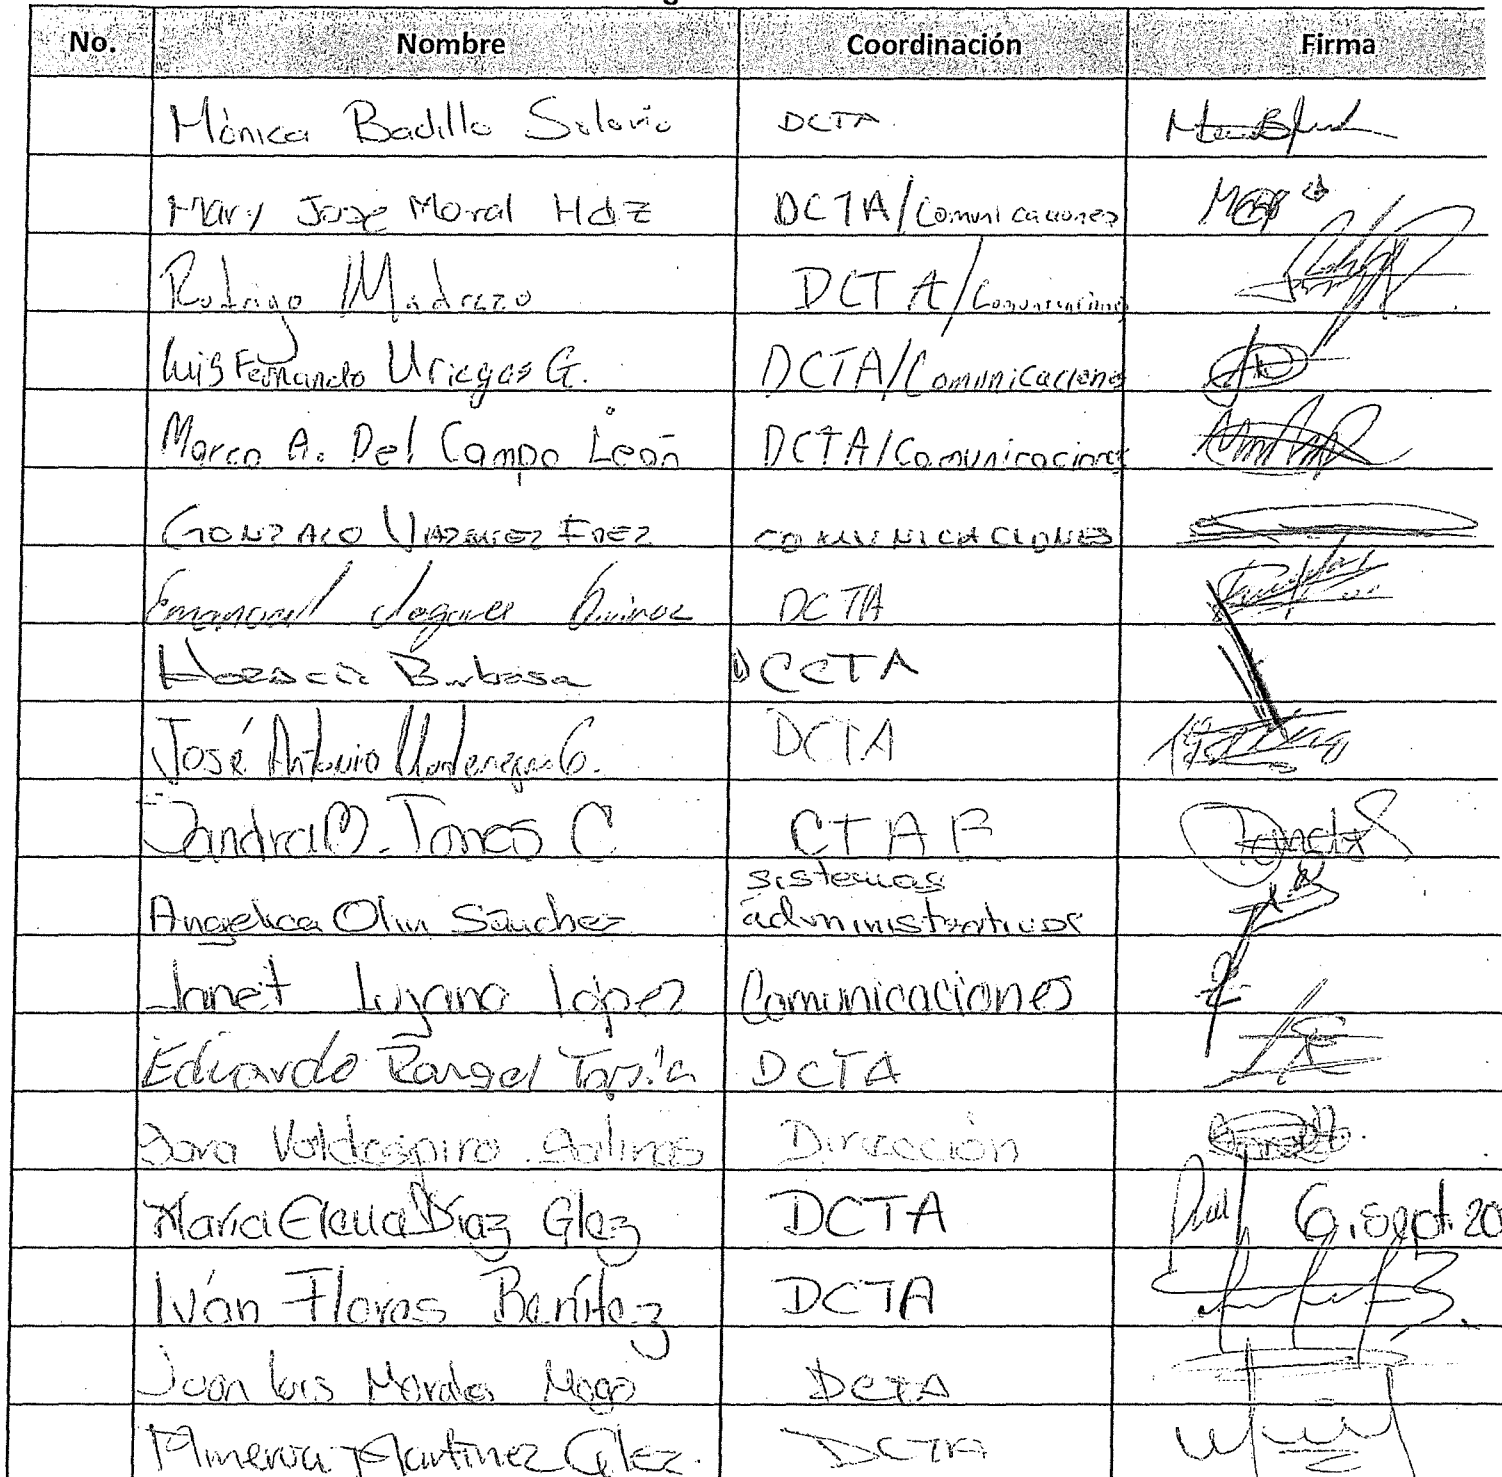 No. Nombre Coordinación Firma
Mónica Badillo DCTA
Mary Jose Moral Hdz DCTA/Comunicaciones
Rodrigo Madrazo DCTA/Comunicaciones
Luis Fernando Uriegas G. DCTA/Comunicaciones
Marco A. Del Campo León DCTA/Comunicaciones
GONZALO VAZQUEZ COMUNICACIONES
Emanuel DCTA
Horacio Barbosa DCCTA
José Antonio DCTA
Sandra O. Torres C CTAF
sistemas
Angelica Olin Sánchez administrativos
Janet Lozano López Comunicaciones
Eduardo Rangel DCTA
Sara Valdespino Salinas Dirección
María Elena Díaz Glez DCTA 6. sept. 20
Iván Flores Benítez DCTA
Juan Luis Morales DCTA
Minerva Martinez Glez. DCTA